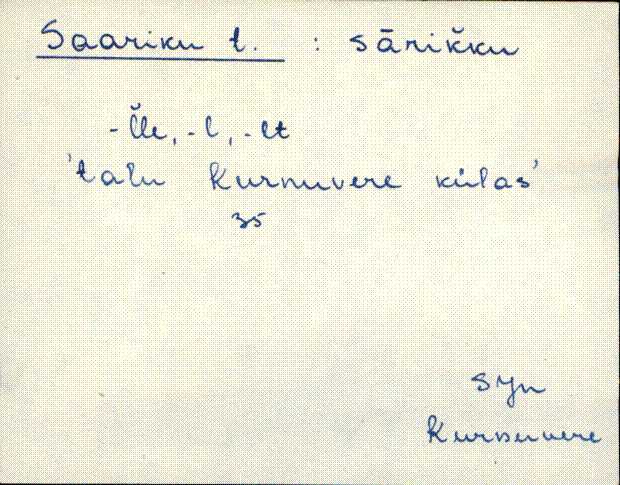 Saariku t. : sārik̆ku
-l̆le, -l, -lt
'talu Kurnuvere külas'
35
SJn
Kurnuvere